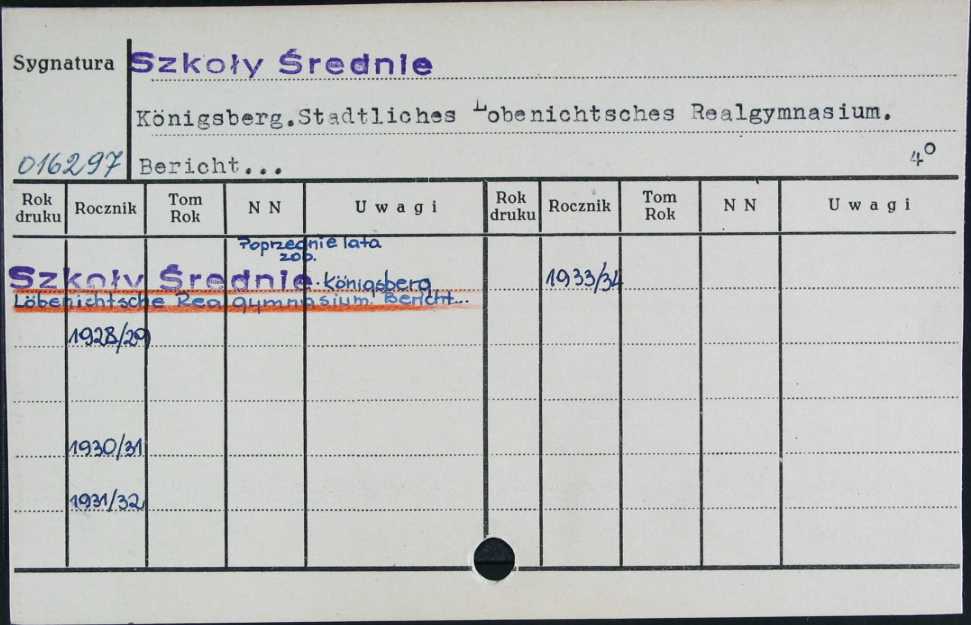 Sygnatura Szkoły Średnie
Königsberg.Stadtliches Lobenichtsches Realgymnasium.
016297 Bericht... 4º
Rok druku Rocznik Tom Rok N N Uwagi Rok druku Rocznik Tom Rok N N Uwagi
Poprzednie lata
zob.
Szkoły Średnie. Königsberg 1933/34
Löbenichtsche Realgymnasium. Bericht...
1928/29
1930/31
1931/32